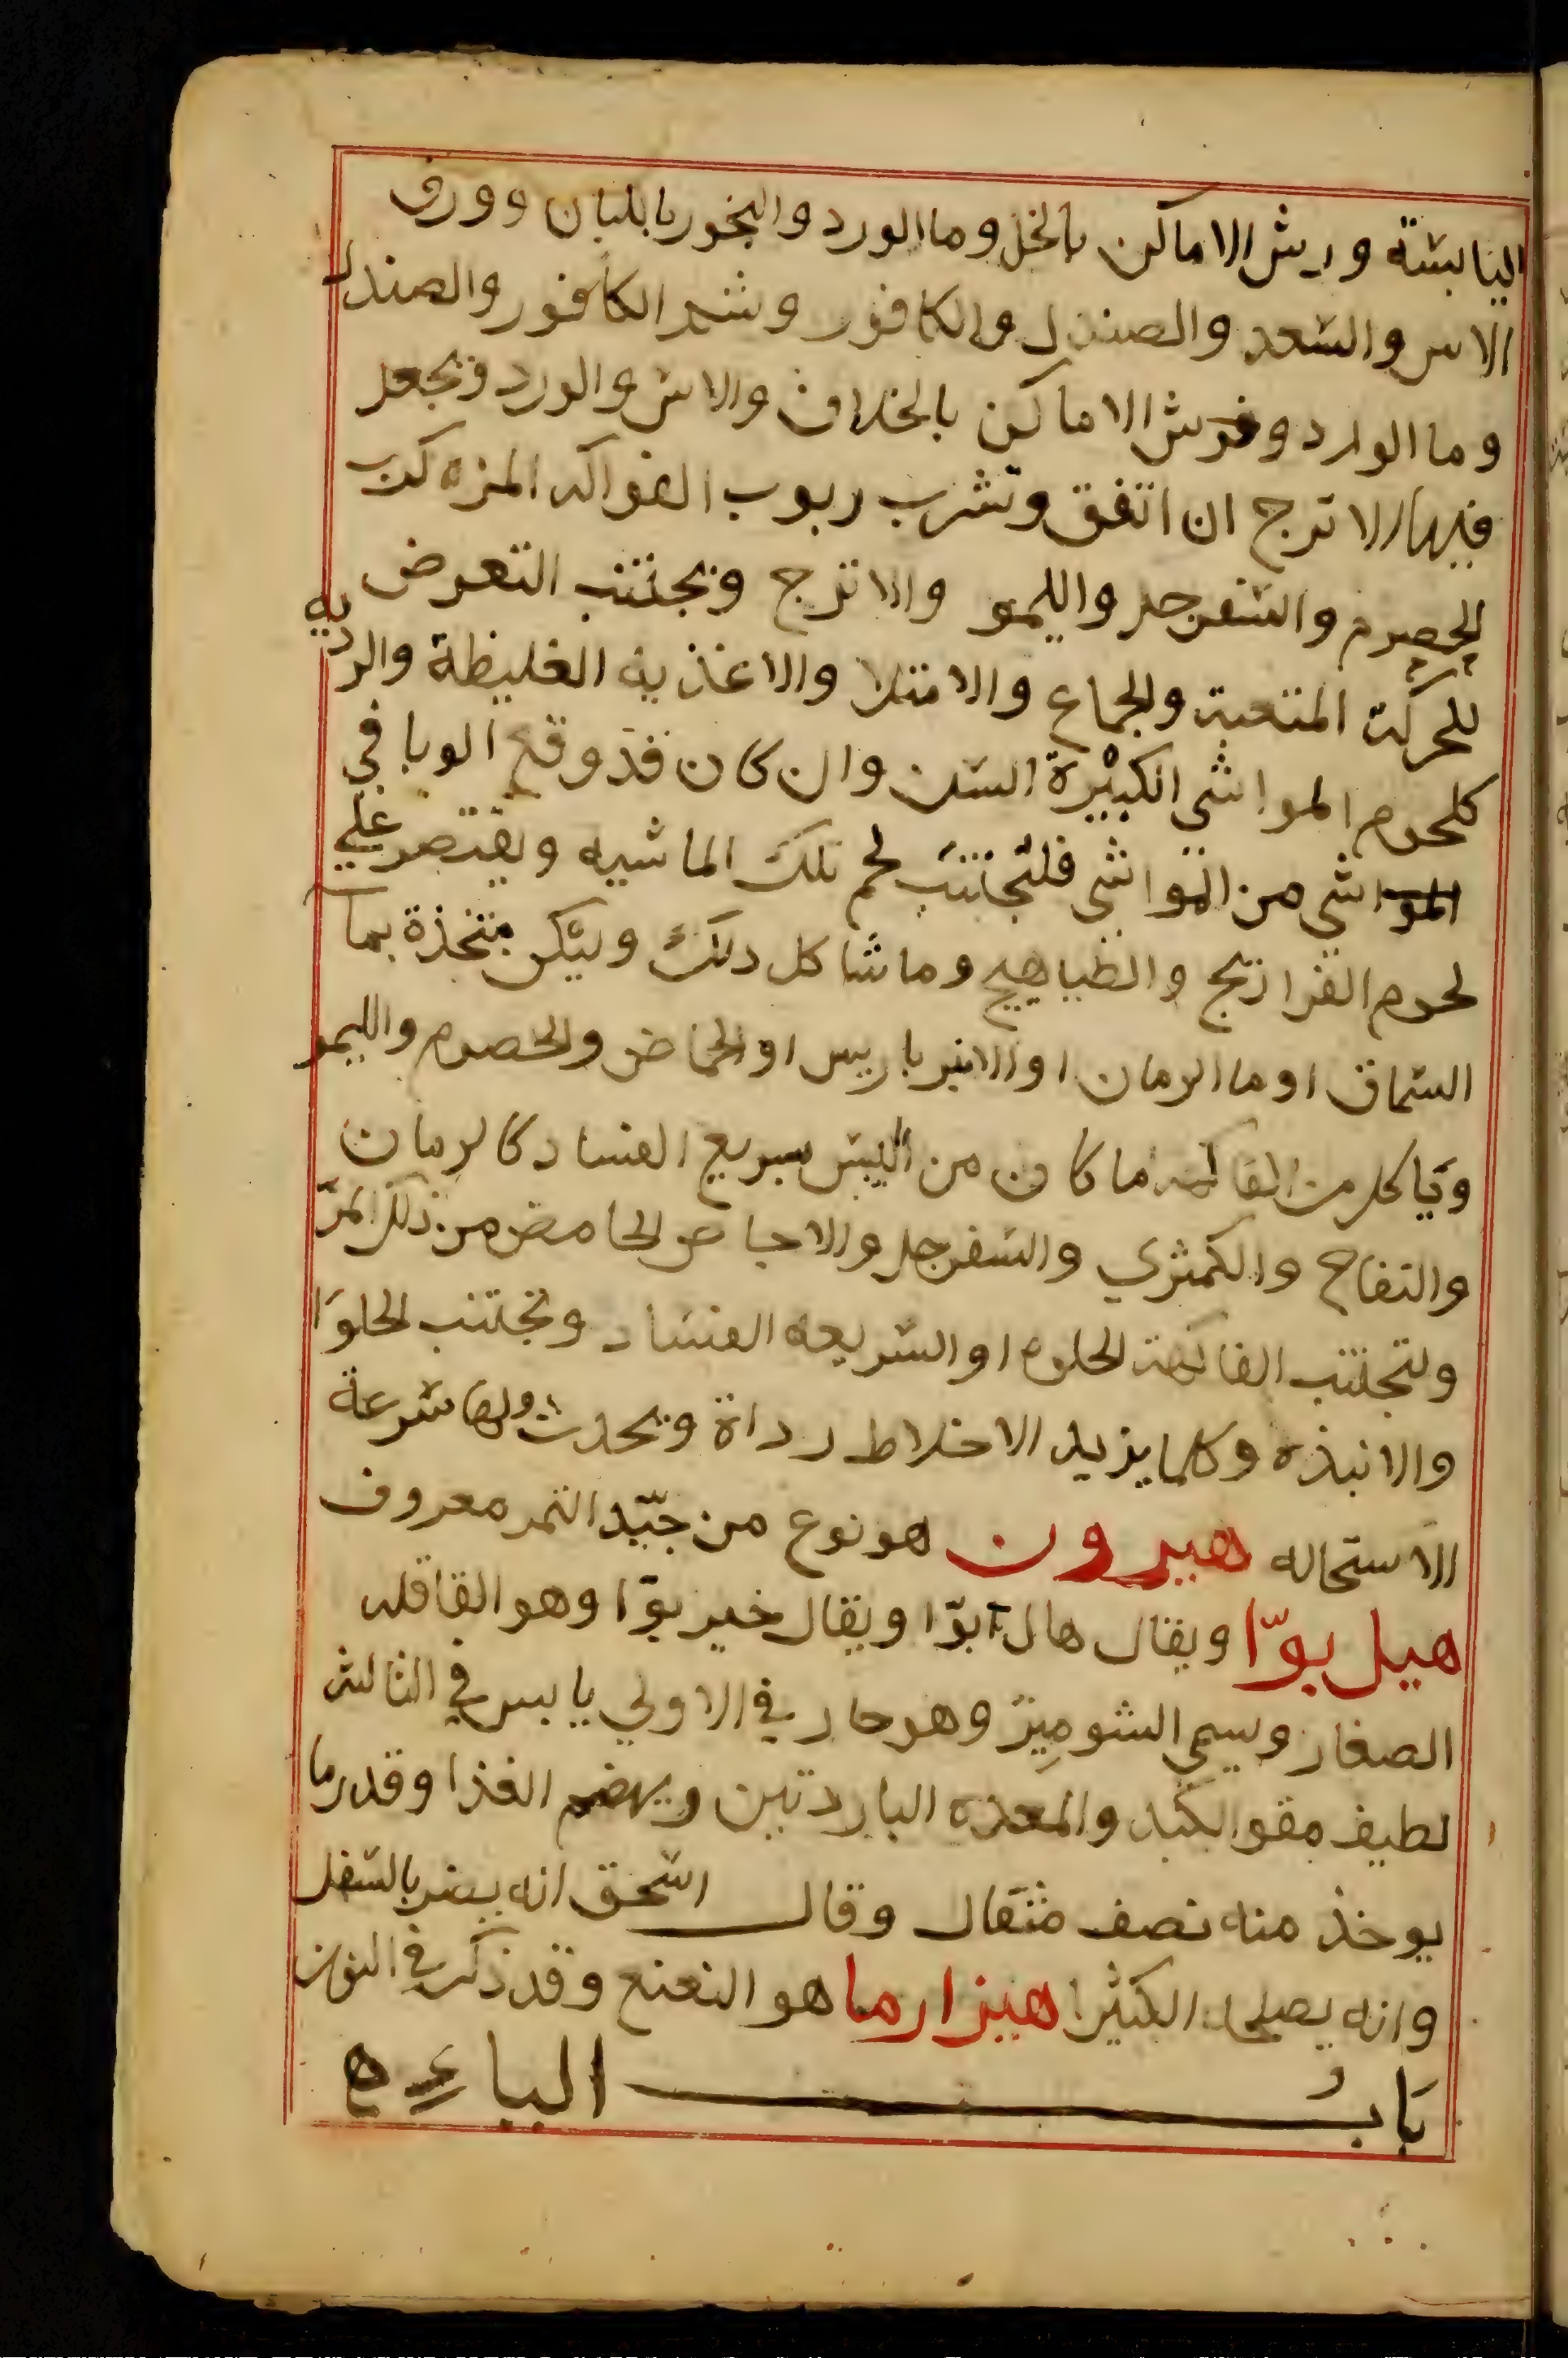 اليابسة ورش الاماكن بالخل وما الورد والبخور باللبان وورق
الاس والسعد والصندل والكافور وشم الكافور والصندل
وما الوارد وفرش الاماكن بالخلاف والاس والورد ويجعل
فيها الاترج ان اتفق وتشرب ربوب الفواكه المزه كرب
الحصرم والسفرجل والليمو والاترج ويجتنب التعرض
للحركة المتعبة والجماع والامتلا والاغذيه الغليظة والرديه
كلحوم المواشي الكبيرة السن وان كان قد وقع الوبا في
المواشي من المواشي فلتجتنب لحم تلك الماشيه ويقتصر علي
لحوم الفراريج والطياهيج وما شاكل ذلك وليكن متخذة بما
السماق او ما الرمان او الانبرباريس او الحماض والحصرم والليمو
وياكل من الفاكهه ما كان من اليبس سريع الفساد كالرمان
والتفاح والكمثري والسفرجل والاجاص الحامض من ذلك المز
ولتجتنب الفاكهة الحلوه او السريعه الفساد وتجتنب الحلوا
والانبذه وكلما يزيد الاخلاط رداة ويحدث ولها سرعة
الاستحاله هيرون هو نوع من جيد التمر معروف
هيل بوّا ويقال هال بوّا ويقال خير بوّا وهو القاقله
الصغار ويسمي الشومير وهو حار في الاولي يابس في الثالثه
لطيف مقو الكبد والمعده الباردتين ويهضم الغذا وقدر ما
يوخذ منه نصف مثقال وقال اسحق انه يضر بالسفل
وانه يصلحه الكثيرا هيزارما هو النعنع وقد ذكر في النون
بَابُ الياء ه